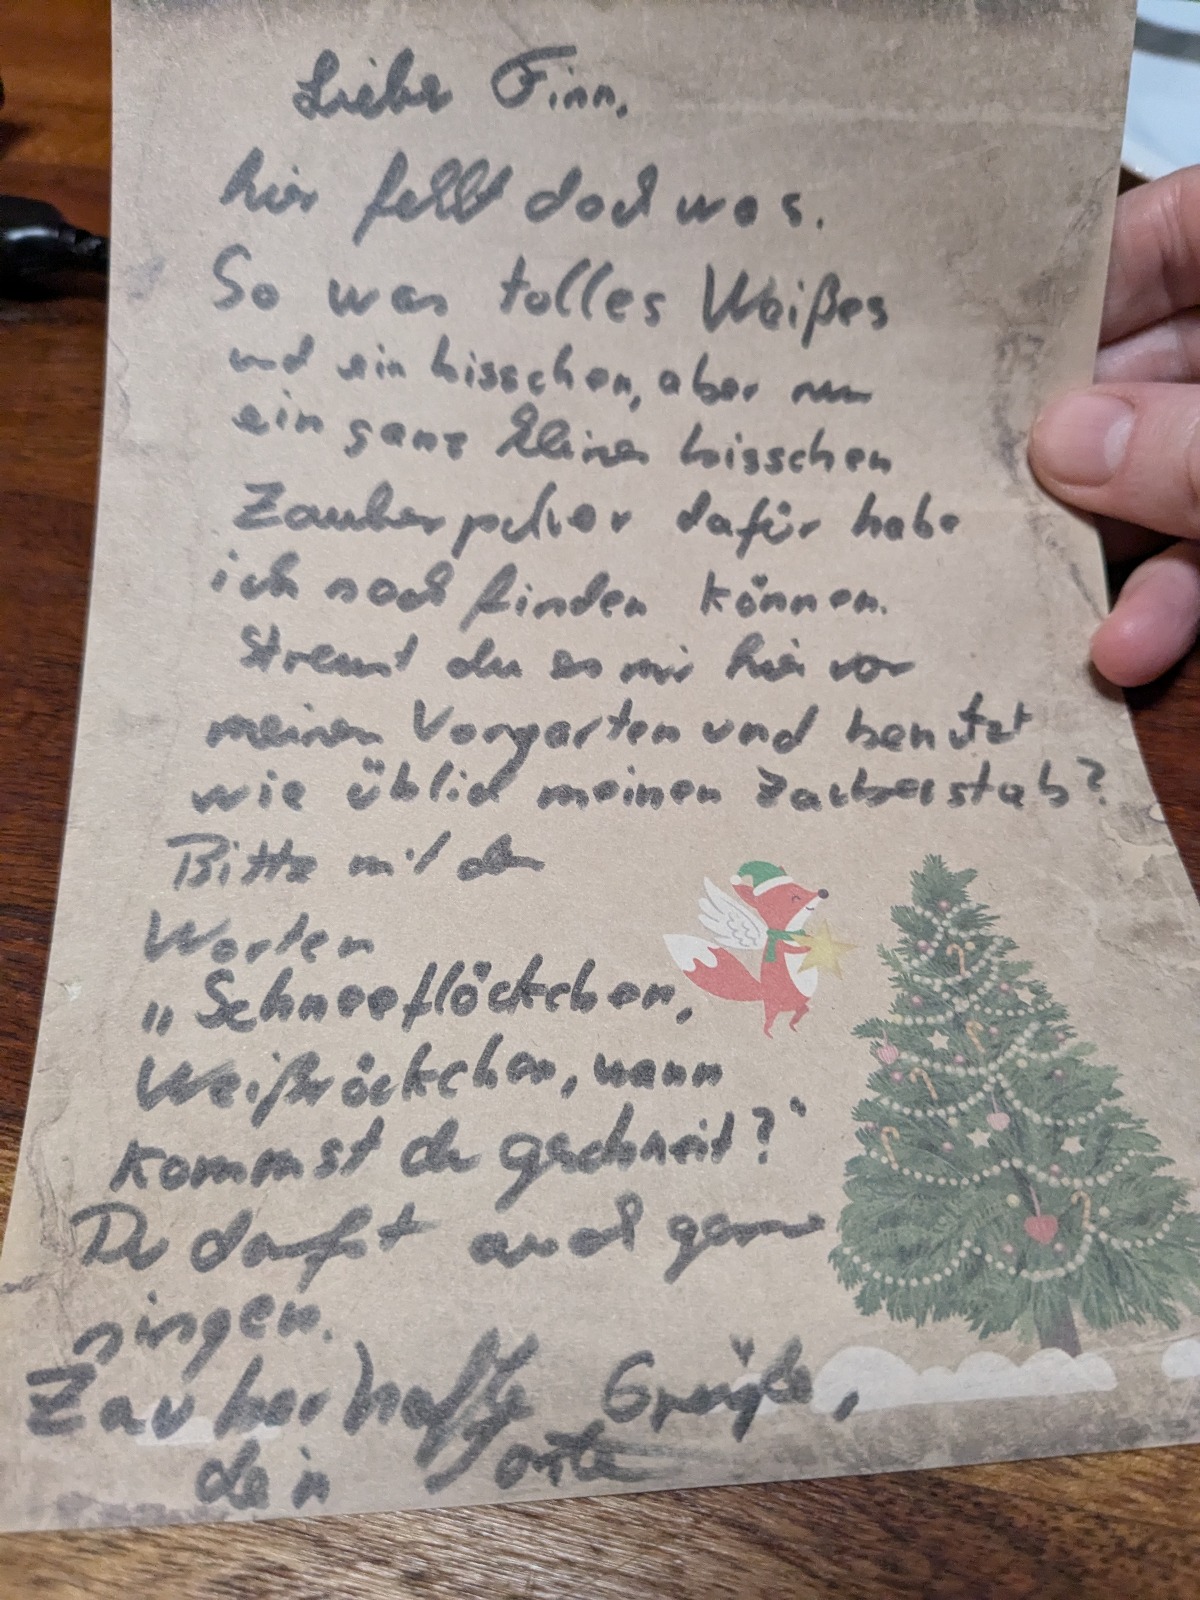 Liebe Finn,
hier fehlt doch was.
So was tolles Weißes
und ein bisschen, aber nur
ein ganz kleines bisschen
Zauberpulver dafür habe
ich noch finden können.
Streust du es mir hier vor
meinen Vorgarten und benutzt
wie üblich meinen Zauberstab?
Bitte mit den
Worten
„Schneeflöckchen,
Weißröckchen, wann
kommst du geschneit?"
Du darfst auch gerne
singen.
Zauberhafte Grüße,
dein